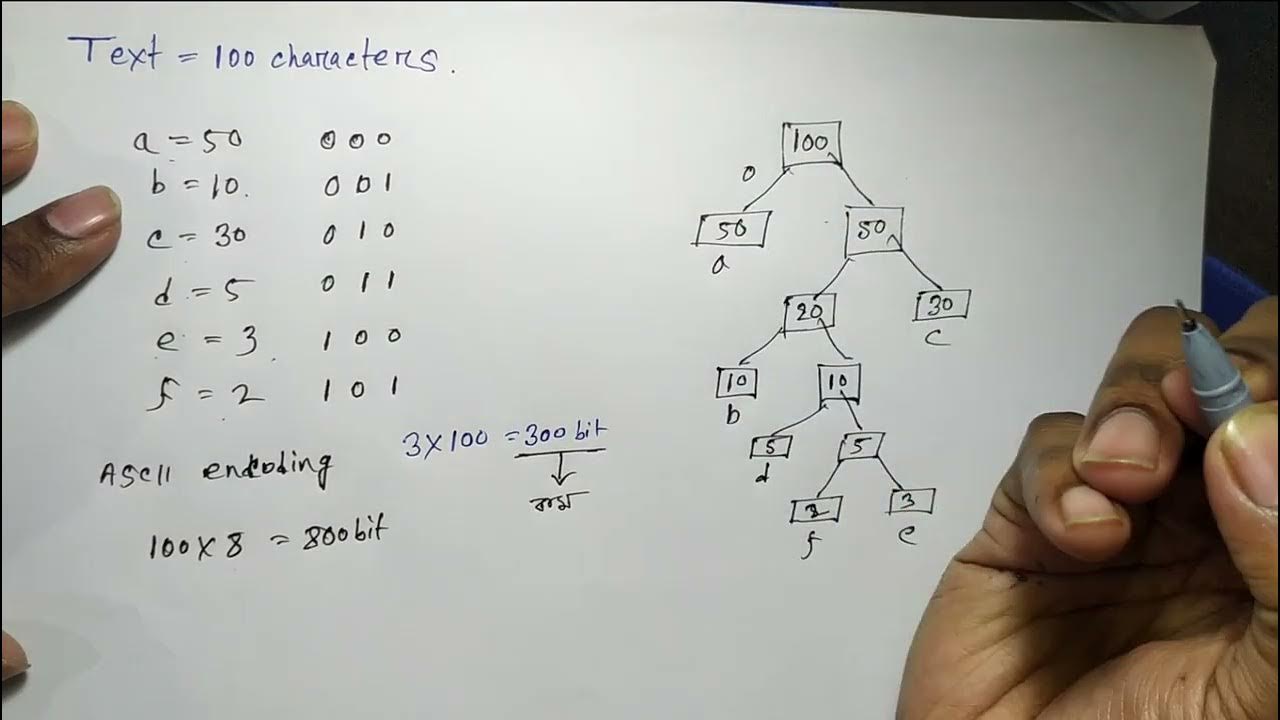 Text = 100 characters.
a = 50 000
b = 10. 001
c = 30 010
d = 5 011
e = 3 100
f = 2 101
3X100 = 300 bit
কম
ASCII encoding
100X8 = 800bit
100
0
50 50
a
20 30
c
10 10
b
5 5
d
2 3
f e